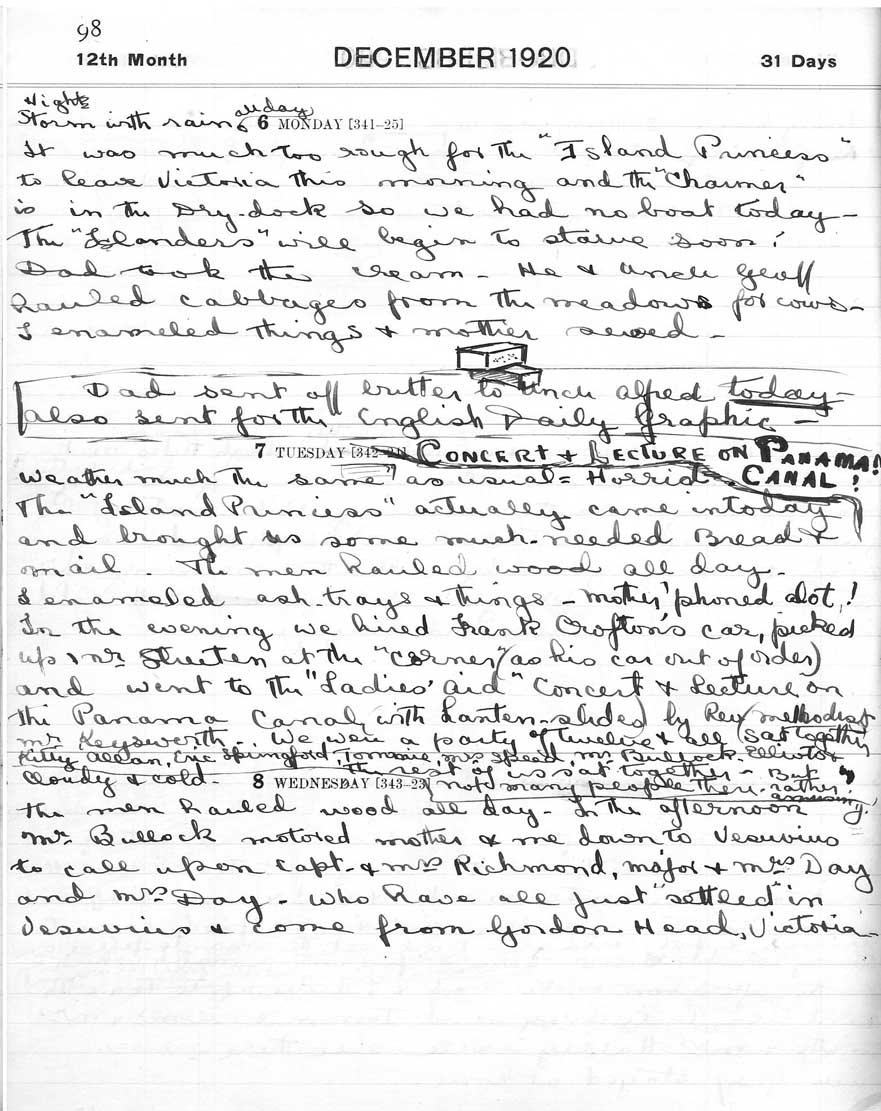 98
12th Month DECEMBER 1920 31 Days
Night
Storm with rain all day 6 MONDAY [341-25]
It was much too rough for the "Island Princess"
to leave Victoria this morning and the "Charmer"
is in the Dry-dock so we had no boat today -
The "Islanders" will begin to starve soon!
Dad took the cream - He & Uncle Geoff
hauled cabbages from the meadows for cows -
I enameled things & mother sewed -
Dad sent off butter to Uncle Alfred today -
also sent for the "English Daily Graphic -
7 TUESDAY [342-24] CONCERT & LECTURE ON PANAMA!
CANAL!
Weather much the same as usual = Horrid -
The "Island Princess" actually came in today
and brought us some much-needed Bread &
mail. The men hauled wood all day -
I enameled ash-trays & things - Mother 'phoned alot!
In the evening we hired Frank Crofton's car, picked
up Mr Streeten at the "corner" (as his car out of order)
and went to the "Ladies' Aid" Concert & Lecture on
the Panama Canal, (with Lantern-slides) by Rev methodist
Mr Keysworth - We were a party of twelve & all (sat together
Kitty Allan, Eric Springford, Tommie, Mrs Speed, Mr Bullock. Elliot &
the rest of us sat together - But
Cloudy & cold - 8 WEDNESDAY [343-23] not many people there - rather
amusing!
The men hauled wood all day - In the afternoon
Mr Bullock motored mother & me down to Vesuvius
to call upon Capt - & Mrs Richmond, Major & Mrs Day
and Mrs Day - who have all just "settled" in
Vesuvius & come from Gordon Head, Victoria -